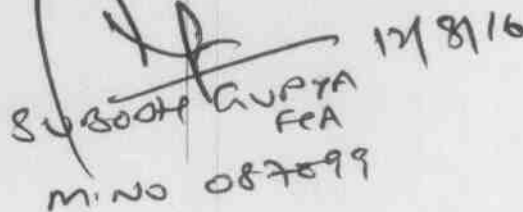 12/8/16
SUBODH GUPTA
FCA
M.NO 087899